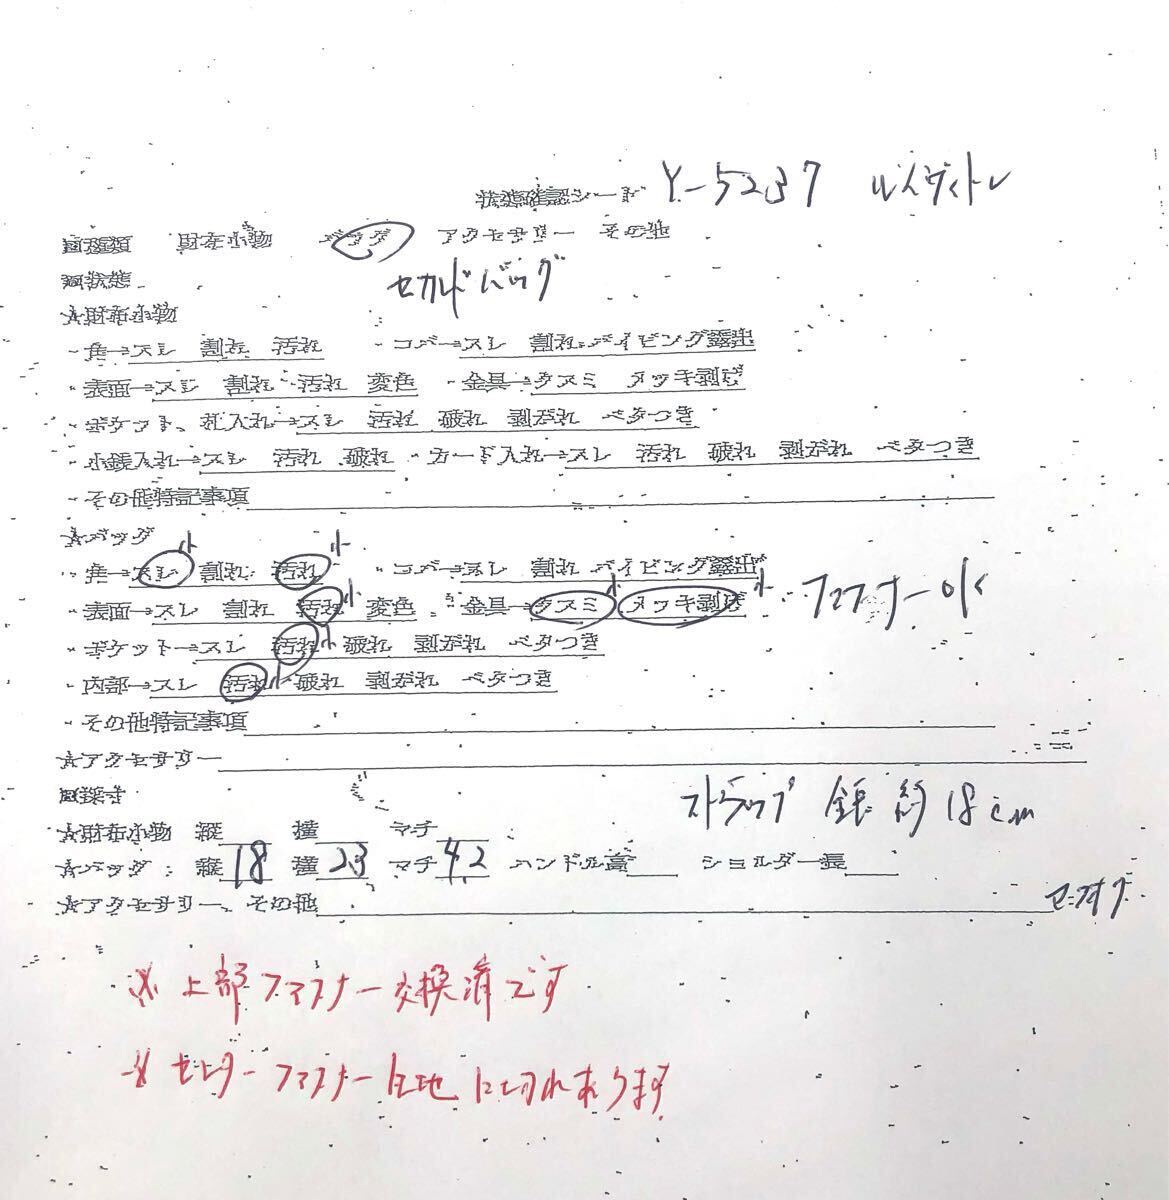 状態確認シート Y-5237 ルイヴィトン
■種類 財布小物 バッグ アクセサリー その他
■状態 セカンドバッグ
★財布小物
・角→スレ 割れ 汚れ ・コバ→スレ 割れ パイピング露出
・表面→スレ 割れ 汚れ 変色 ・金具→クスミ メッキ剥げ
・ポケット、札入れ→スレ 汚れ 破れ 剥がれ ベタつき
・小銭入れ→スレ 汚れ 破れ ・カード入れ→スレ 汚れ 破れ 剥がれ ベタつき
・その他特記事項
★バッグ
・角→スレ小 割れ 汚れ小 ・コバ→スレ 割れ パイピング露出
・表面→スレ 割れ 汚れ小 変色 ・金具→クスミ小 メッキ剥げ小 ファスナーOK
・ポケット→スレ 汚れ小 破れ 剥がれ ベタつき
・内部→スレ 汚れ小 破れ 剥がれ ベタつき
・その他特記事項
★アクセサリー
■採寸 ストラップ 全長 約18cm
★財布小物 縦 横 マチ
★バッグ 縦18 横23 マチ4.2 ハンドル高 ショルダー長
★アクセサリー、その他
※上部ファスナー交換済です
※センターファスナー生地に切れあります